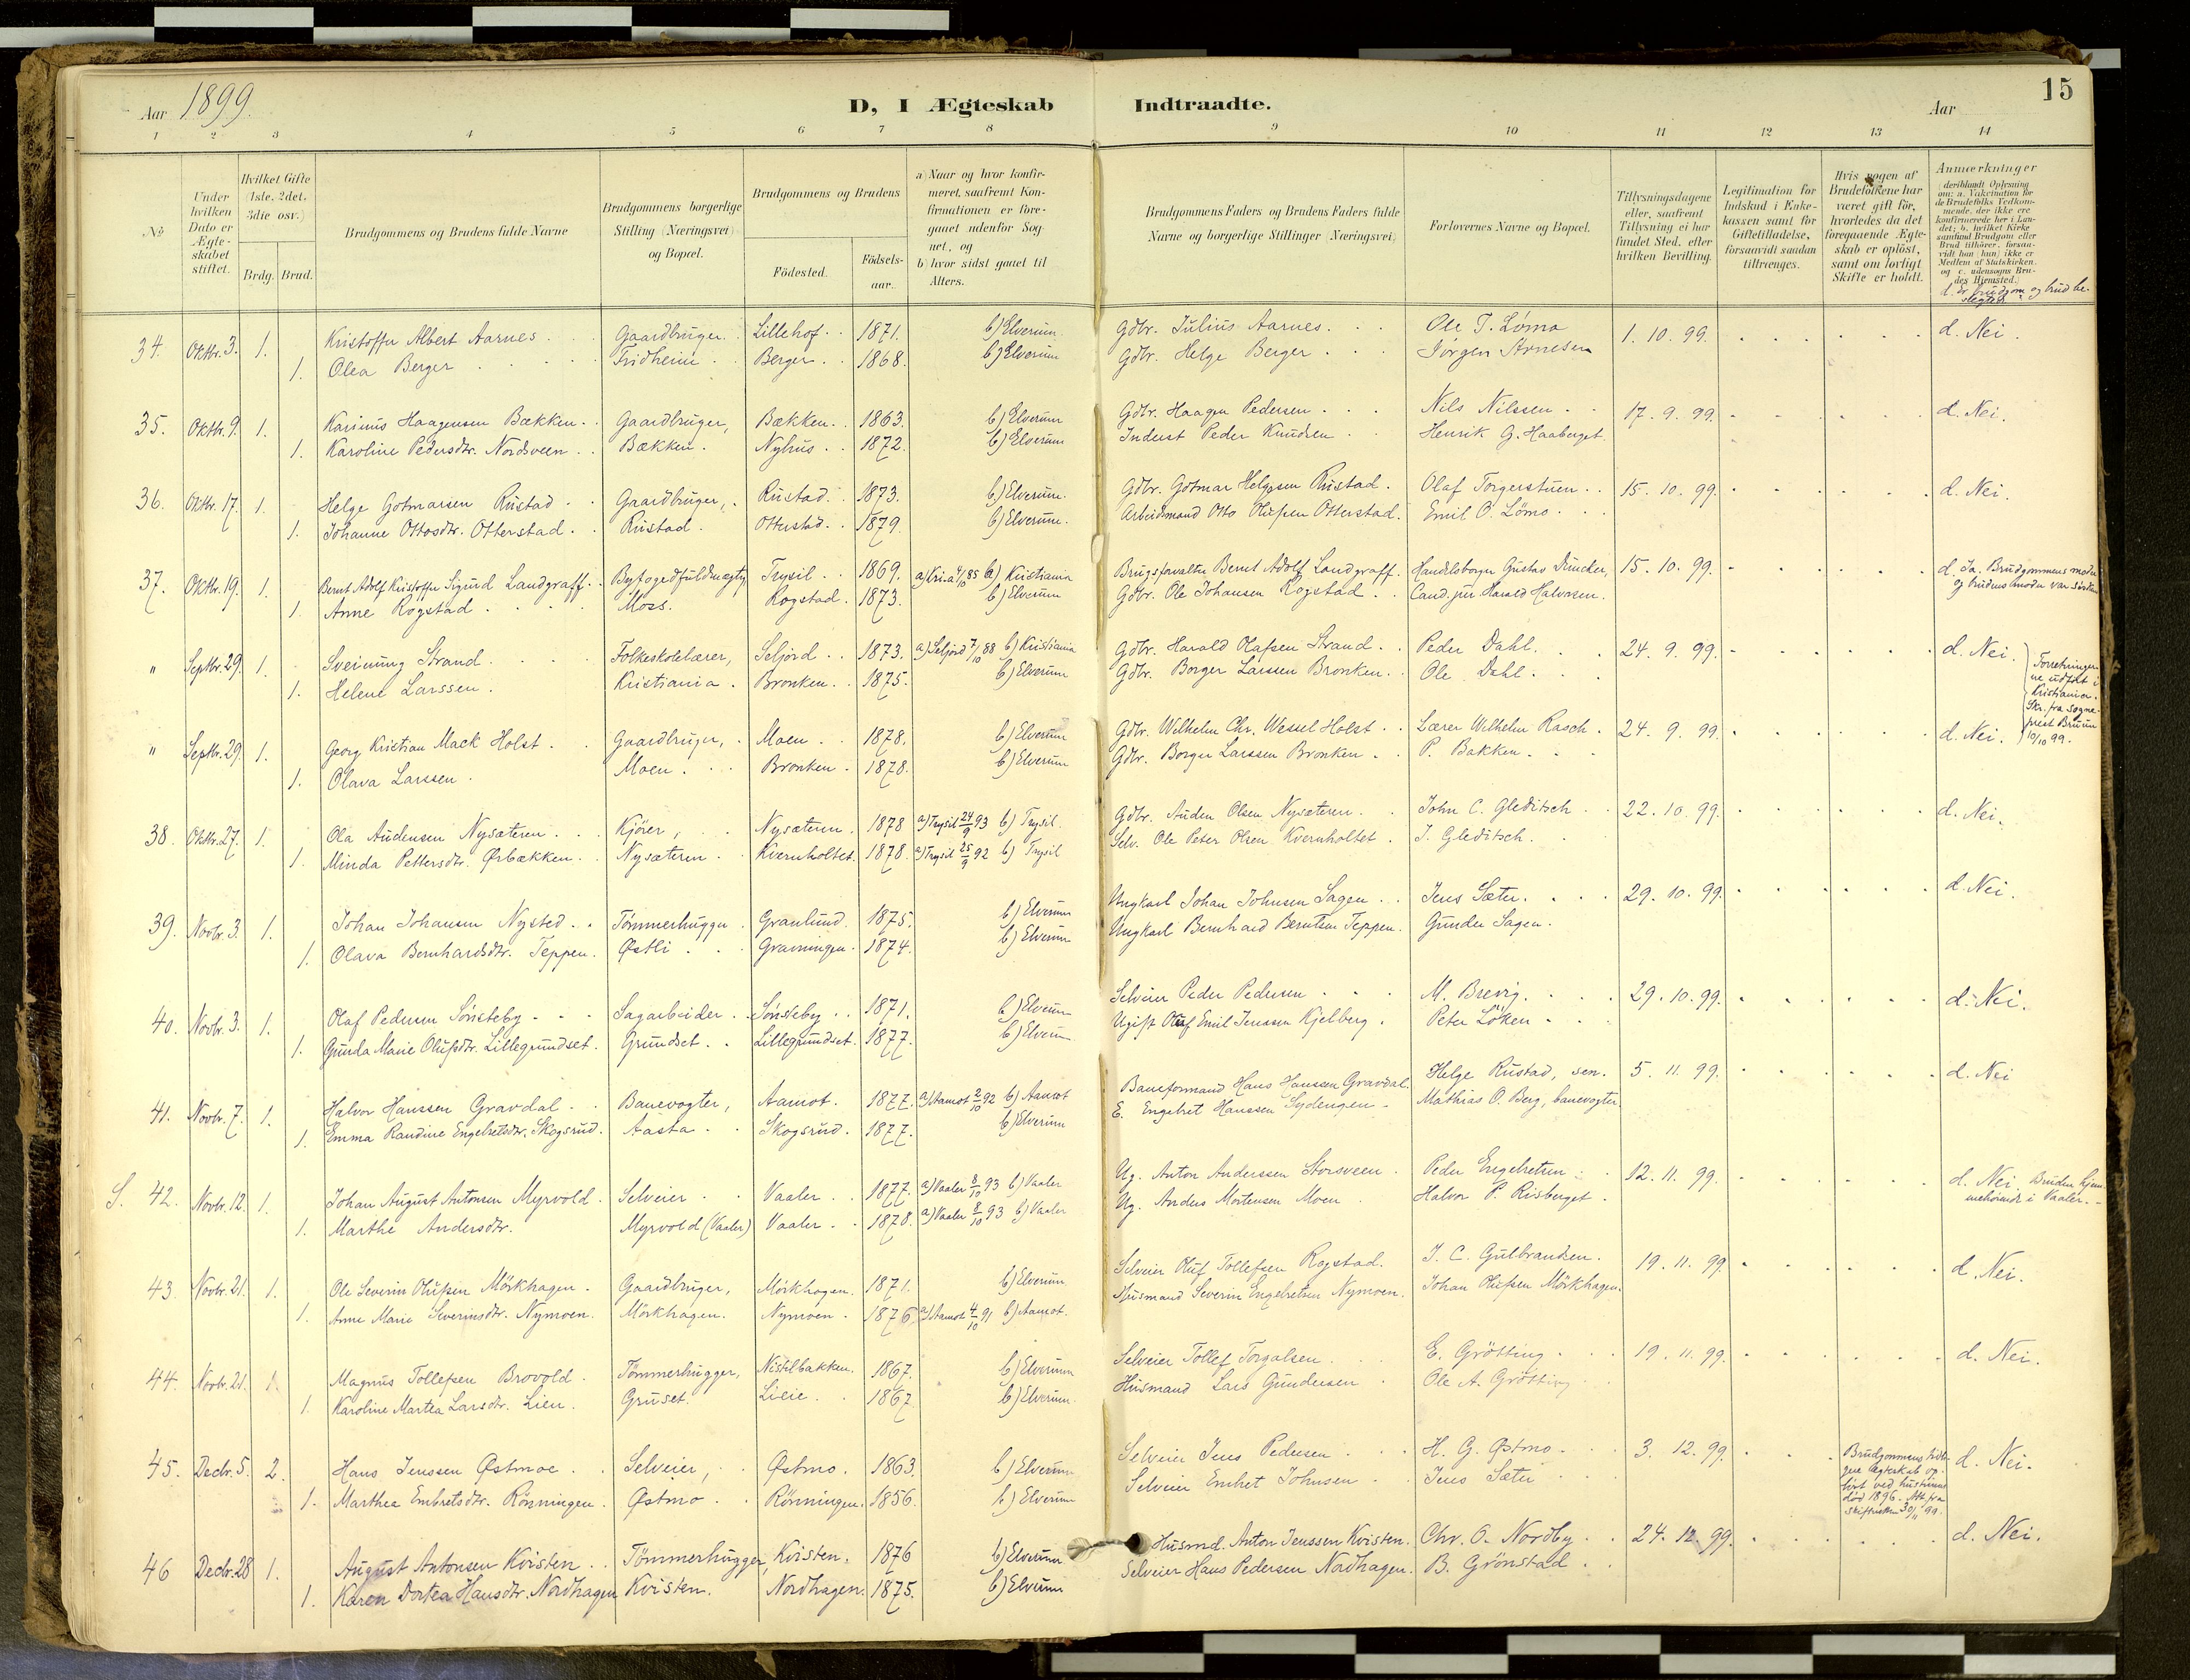 15
Aar 1899.
D, I Ægteskab Indtraadte.
Aar
1 2 3 4 5 6 7 8 9 10 11 12 13 14
No
Under hvilken Dato er Ægteskabet stiftet.
Hvilket Gifte (1ste, 2det, 3die osv.)
Brdg. Brud.
Brudgommens og Brudens fulde Navne
Brudgommens borgerlige Stilling (Næringsvei) og Bopæl.
Brudgommens og Brudens
Födested.
Födselsaar.
a) Naar og hvor konfirmeret, saafremt Konfirmationen er foregaaet udenfor Sognet, og
b) hvor sidst gaaet til Alters.
Brudgommens Faders og Brudens Faders fulde Navne og borgerlige Stillinger (Næringsvei)
Forlovernes Navne og Bopæl.
Tillysningsdagene eller, saafremt Tillysning ei har fundet Sted, efter hvilken Bevilling.
Legitimation for Indskud i Enkekassen samt for Giftetilladelse, forsaavidt saadan tiltrænges.
Hvis nogen af Brudefolkene har været gift för, hvorledes da det foregaaende Ægteskab er oplöst, samt om lovligt Skifte er holdt.
Anmærkninger (deriblandt Oplysning om: a. Vakcination for de Brudefolks Vedkommende, der ikke ere konfirmerede her i Landet; b. hvilket Kirkesamfund Brudgom eller Brud tilhörer, forsaavidt han (hun) ikke er Medlem af Statskirken, og c. udensogns Brudes Hjemsted.)
d. Er brudgom og brud beslegtet.
34. Oktbr. 3. 1. Kristoffer Albert Aarnes. Gaardbruger. Lillehof. 1871. b) Elverum Gdbr. Julius Aarnes. Ole T. Lömo 1. 10. 99. d. Nei.
1. Olea Berger Fridheim Berger. 1868. b) Elverum Gdbr. Helge Berger Jörgen Arnesen
35. Oktbr. 9. 1. Karinus Haagensen Bækken. Gaardbruger, Bækken. 1863. b) Elverum Gdbr. Haagen Pedersen. Nils Nilssen 17. 9. 99. d. Nei.
1. Karoline Pedersdtr. Nordsveen Bækken. Nyhus. 1872. b) Elverum Inderst Peder Knudsen Henrik G. Haaberget.
36. Oktbr. 17. 1. Helge Gotmarsen Rustad Gaardbruger, Rustad. 1873. b) Elverum. Gdbr. Gotmar Helgesen Rustad. Olaf Torgerstuen. 15. 10. 99. d. Nei.
1. Johanne Ottosdtr. Otterstad. Rustad. Otterstad. 1879. b) Elverum. Arbeidsmand Otto Olufsen Otterstad. Emil O. Lömo.
37. Oktbr. 19. 1. Bernt Adolf Kristoffer Sigurd Landgraff. Byfogedfuldmægtig Trysil. 1869. a) Kr.a 4/10 85 b) Kristiania Brugsforvalter Bernt Adolf Landgraff. Handelsborger Gustav Duncker, 15. 10. 99. d. Ja. Brudgommens moder og brudens moder var söstre
1. Anne Rogstad Moss. Rogstad. 1873. b) Elverum Gdbr. Ole Johansen Rogstad. Cand. jur Harald Halvorsen.
" Septbr. 29. 1. Sveinung Strand. Folkeskolelærer, Seljord. 1873. a) Seljord 7/10 88 b) Kristiania Gdbr. Harald Olafsen Strand. Peder Dahl. 24. 9. 99. d. Nei.
1. Helene Larssen. Kristiania. Bronken. 1875. b) Elverum Gdbr. Borger Larssen Bronken. Ole Dahl.
Forretningerne udfört i Kristiania. Skr. fra sogneprest Bruun 10/10 99.
" Septbr. 29. 1. Georg Kristian Mack Holst. Gaardbruger, Moen. 1878. b) Elverum Gdbr. Wilhelm Chr. Wessel Holst. Lærer Wilhelm Rasch. 24. 9. 99. d. Nei.
1. Olava Larssen. Moen. Bronken. 1878. b) Elverum Gdbr. Borger Larssen Bronken. P. Bakken.
38. Oktbr. 27. 1. Ola Audensen Nysæteren. Kjörer, Nysæteren. 1878 a) Trysil 24/9 93 b) Trysil. Gdbr. Auden Olsen Nysæteren. John C. Gleditsch 22. 10. 99. d. Nei.
1. Minda Pettersdtr. Ørbækken. Nysæteren. Kvernholtet. 1878. a) Trysil 25/9 92 b) Trysil Selv. Ole Peter Olsen Kvernholtet. J. Gleditsch.
39. Novbr. 3. 1. Johan Johansen Nysted. Tömmerhugger. Granlund. 1875. b) Elverum Ungkarl Johan Johnsen Sagen. Jens Sæter. 29. 10. 99. d. Nei.
1. Olava Bernhardsdtr. Teppen. Østli. Gravningen. 1874. b) Elverum Ungkarl Bernhard Berntsen Teppen. Gunder Sagen.
40. Novbr. 3. 1. Olaf Pedersen Sönsteby. Sagarbeider. Sönsteby. 1871. b) Elverum Selveier Peder Pedersen M. Brevig. 29. 10. 99. d. Nei.
1. Gunda Marie Olufsdtr. Lillegrundset. Grundset. Lillegrundset. 1877. b) Elverum Ugift Oluf Emil Jenssen Kjelberg. Peter Löken
41. Novbr. 7. 1. Halvor Hanssen Gravdal. Banevogter, Aamot. 1877. a) Aamot 2/10 92 b) Aamot Baneformand Hans Hanssen Gravdal. Helge Rustad, sen. 5. 11. 99. d. Nei
1. Emma Randine Engebretsdtr. Skogsrud. Aasta. Skogsrud. 1877. b) Elverum E. Engebret Hanssen Sydengen. Mathias O. Berg, banevogter.
S. 42. Novbr. 12. 1. Johan August Antonsen Myrvold. Selveier. Vaaler. 1877. a) Vaaler 8/10 93 b) Vaaler Ug. Anton Anderssen Storsveen. Peder Engebretsen. 12. 11. 99. d. Nei. Bruden hjemmehörende i Vaaler.
1. Marthe Andersdtr. Myrvold (Vaaler) Vaaler. 1878. a) Vaaler 8/10 93 b) Vaaler Ug. Anders Mortensen Moen. Halvor P. Risberget.
43. Novbr. 21. 1. Ole Severin Olufsen Mörkhagen. Gaardbruger, Mörkhagen. 1871. b) Elverum. Selveier Oluf Tollefsen Rogstad. J. C. Gulbrandsen. 19. 11. 99. d. Nei.
1. Anne Marie Severinsdtr. Nymoen. Mörkhagen. Nymoen. 1876. a) Aamot 4/10 91 b) Aamot. Husmand Severin Engebretsen Nymoen. Johan Olufsen Mörkhagen.
44. Novbr. 21. 1. Magnus Tollefsen Brovold. Tömmerhugger, Nistilbakken. 1867. b) Elverum Selveier Tollef Torgalsen. E. Grötting. 19. 11. 99. d. Nei.
1. Karoline Martea Larsdtr. Lien. Gruset. Lieie. 1867. b) Elverum. Husmand Lars Gundersen Ole A. Grötting.
45. Decbr. 5. 2. Hans Jenssen Østmoe. Selveier, Østmo. 1863. b) Elverum Selveier Jens Pedersen H. G. Østmo. 3. 12. 99. Brudgommens tidligere Ægteskab oplöst ved hustruens död 1896. Att. fra skifteretten 30/11 99. d. Nei.
1. Marthea Embretsdtr. Rönningen. Østmo. Rönningen. 1856. b) Elverum Selveier Embret Johnsen Jens Sæter
46 Decbr. 28 1. August Antonsen Kvisten. Tömmerhugger, Kvisten. 1876 b) Elverum Husmd. Anton Jenssen Kvisten. Chr. O. Nordby. 24. 12. 99. d. Nei.
1. Karen Dortea Hansdtr. Nordhagen Kvisten. Nordhagen. 1875. b) Elverum Selveier Hans Pedersen Nordhagen. B. Grönstad.